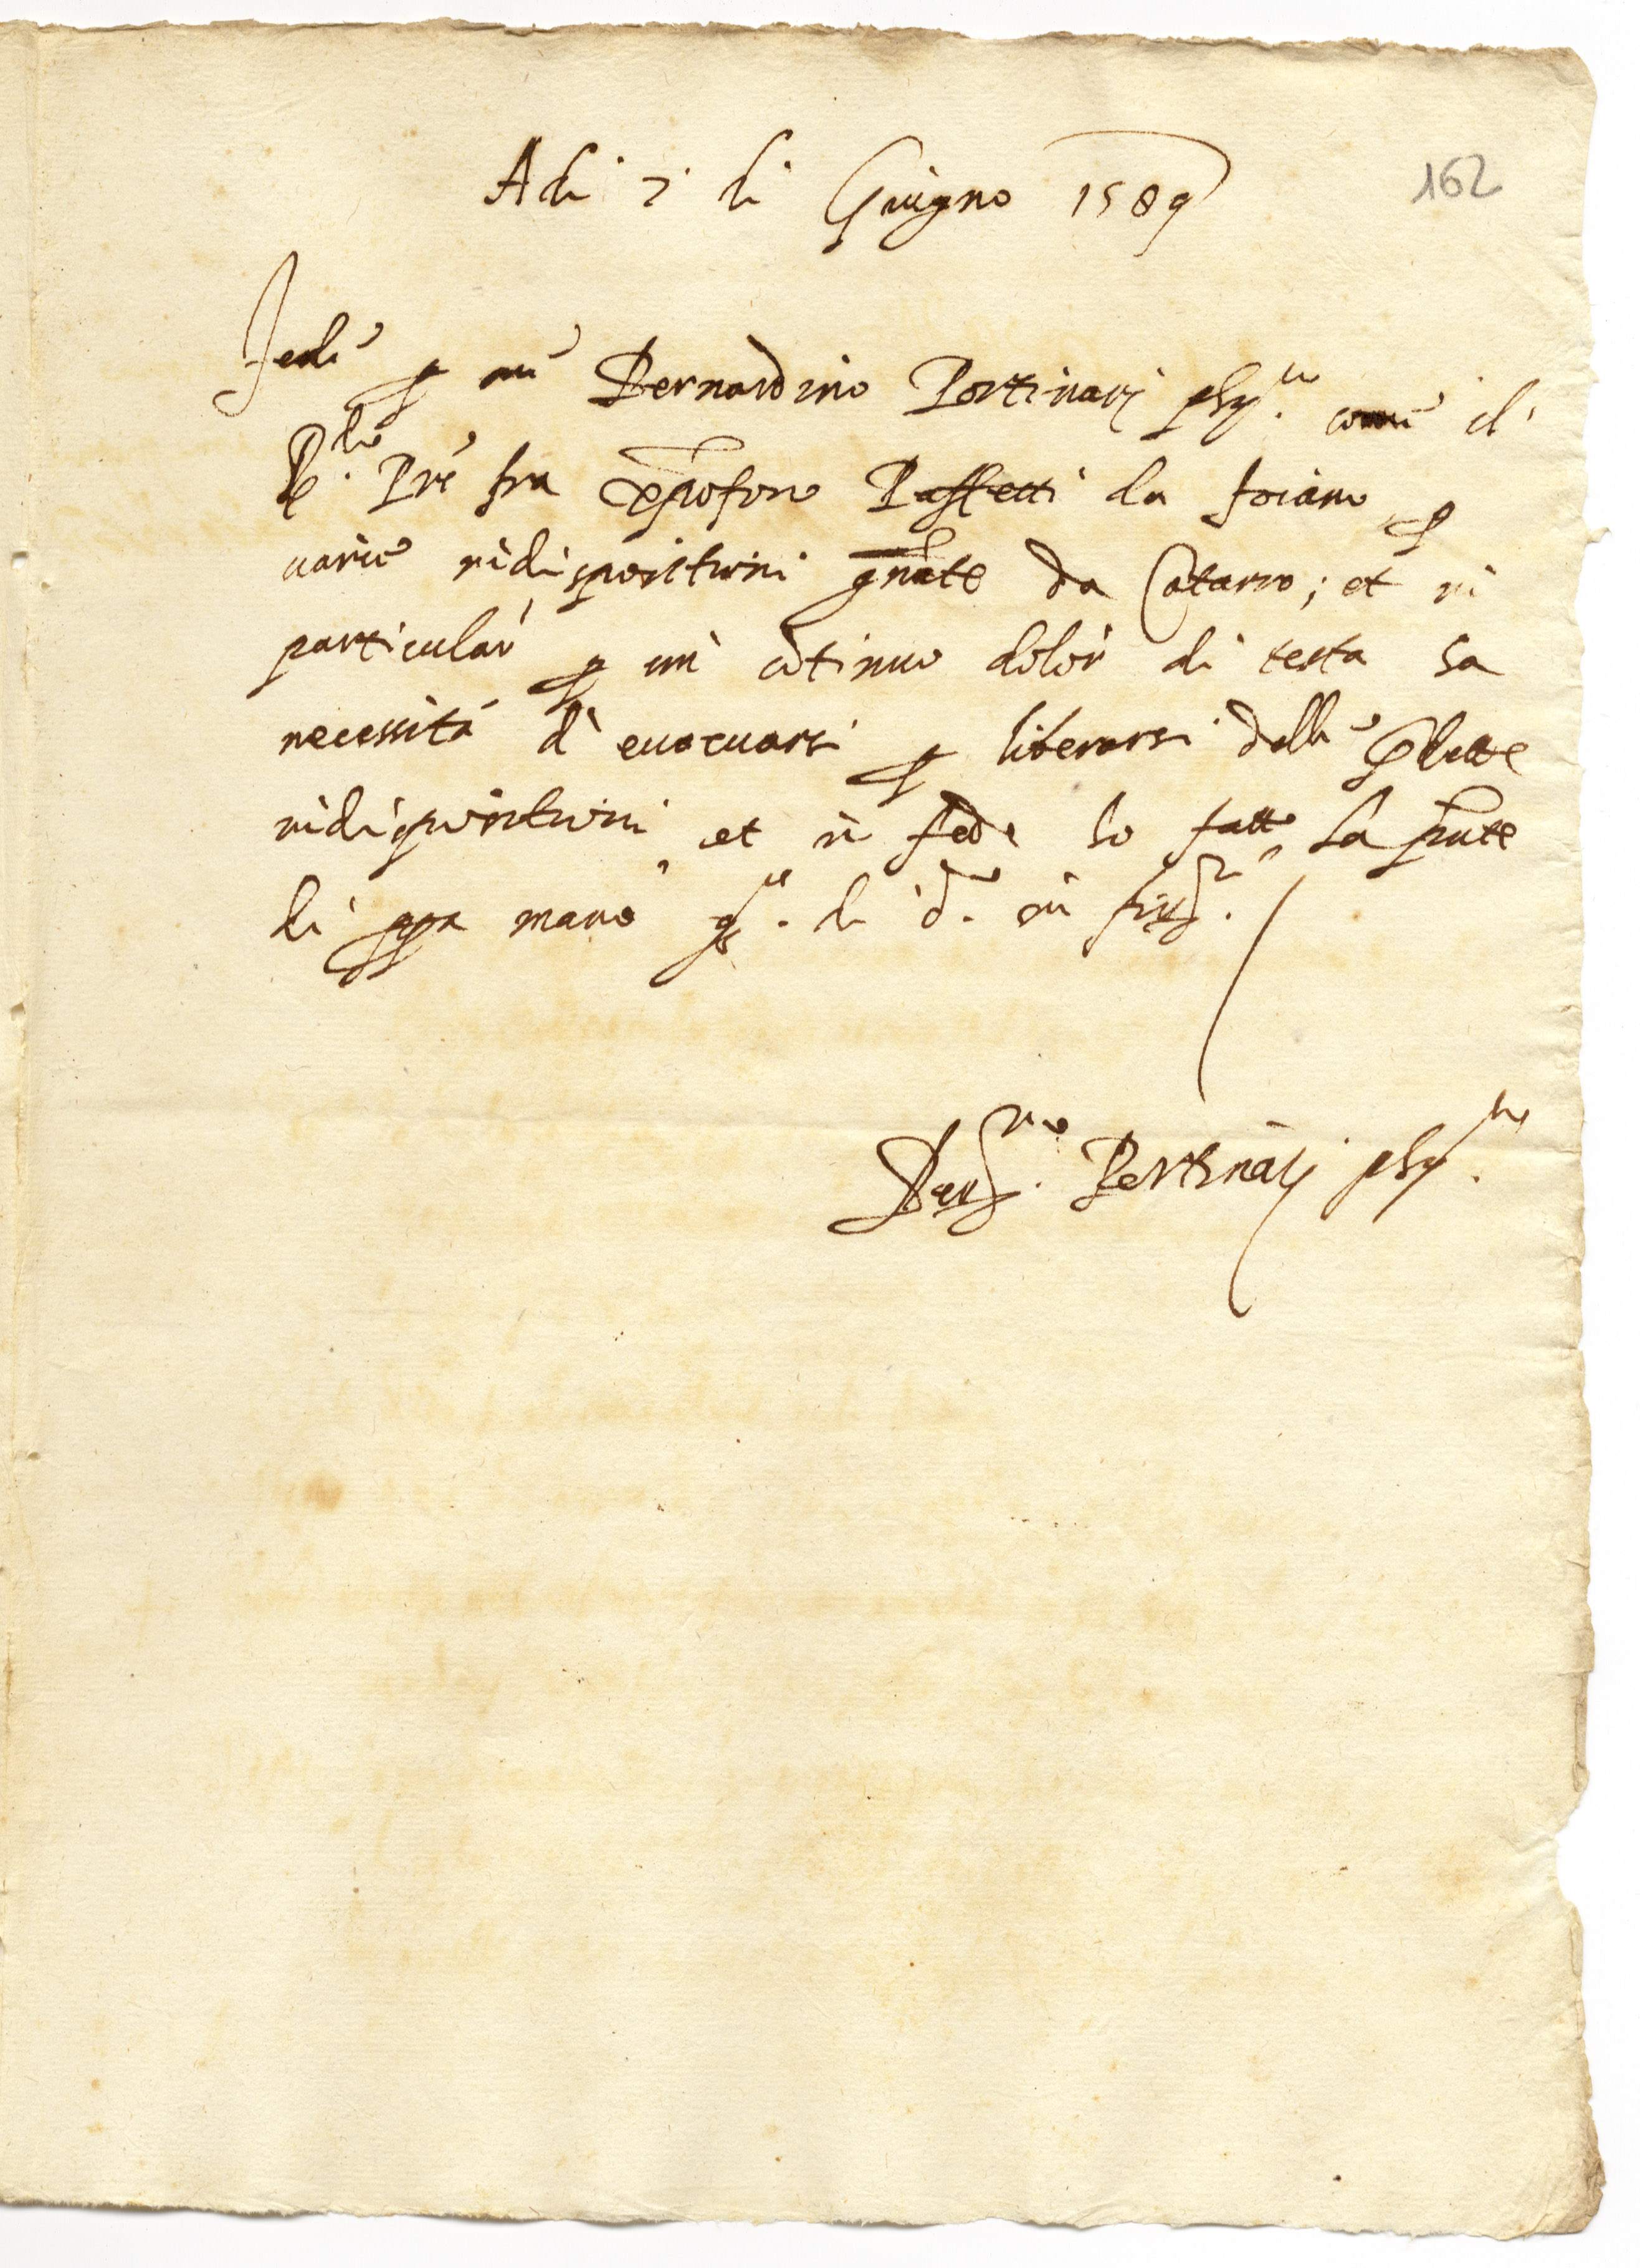 Adi 7 di Giugno 1589
162
Fede p me Bernardino Portinarj phy.co come il
R.do Pre fra Xpofono Paffetti da foiano p
varie indispositioni gnate da Catarro; et in
particular p un cõtinuo dolor di testa ha
necessità d' evacuarsi p liberarsi dalle pdette
indispositioni, et in fede ho fatto la pnte
di ppa mano qto di d.o in firz.e
Berd.no Portinarj phy.co